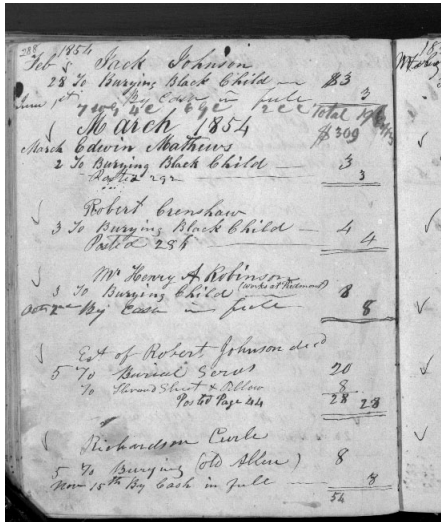 288
Feb 1854 Jack Johnson
28 To Burying Black Child — $3
By Cash in full 3
Total
March 1854 $309
March Edwin Mathews
2 To Burying Black Child — 3
Posted 292 3
Robert Crenshaw
3 To Burying Black Child — 4
Posted 286 4
Mr Henry A Robinson
3 To Burying Child (Works at Piedmont) 8
By Cash in full 8
Est of Robert Johnson decd
5 To Burial Servs 20
To Shroud Sheet & Pillow 8
Posted Page 44 28 28
Richardson Curle
5 To Burying (old Allen) 8
Nov 15th By Cash in full — 8
54